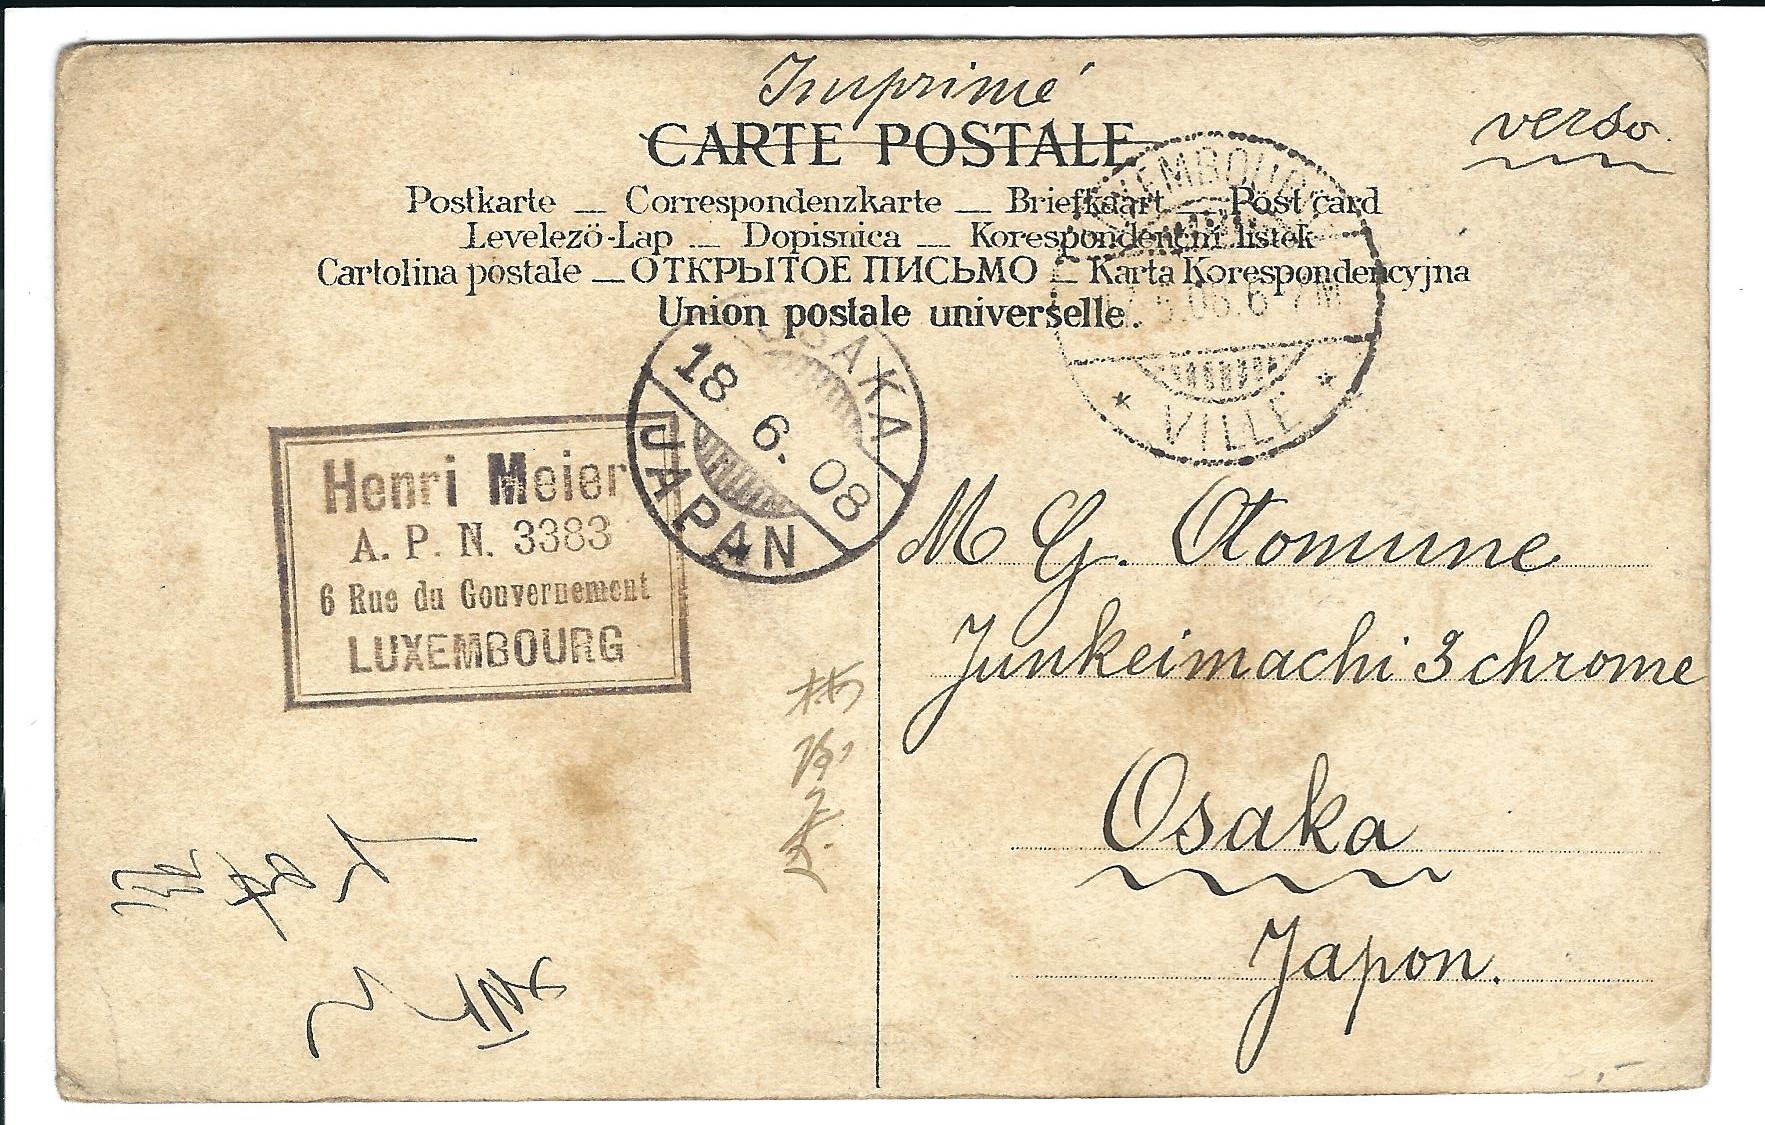 Imprimé
verso.
CARTE POSTALE
Postkarte — Correspondenzkarte — Briefkaart — Post card
Levelező-Lap — Dopisnica — Korespondenčni listek
Cartolina postale — ОТКРЫТОЕ ПИСЬМО — Karta Korespondencyjna
Union postale universelle.
LUXEMBOURG
VILLE
OSAKA
18. 6. 08
JAPAN
Henri Meier
A. P. N. 3383
6 Rue du Gouvernement
LUXEMBOURG
M G. Otomune
Junkeimachi 3 chrome
Osaka
Japon.